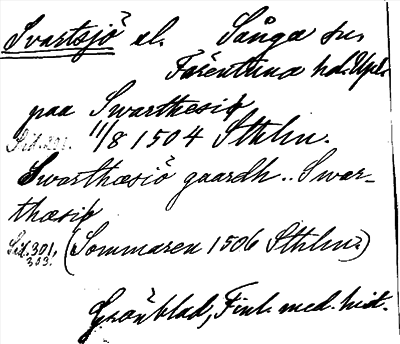 Svartsjö el. Sånga sn
Färentuna hd. Upl.
paa Swarthesiø
Sid. 301. 11/8 1504 Sthlm.
Swarthæsiö gaardh.. Swar-
thæsiø
Sid. 301, 303. (Sommaren 1506 Sthlm?)
Grönblad, Finl. med. hist.